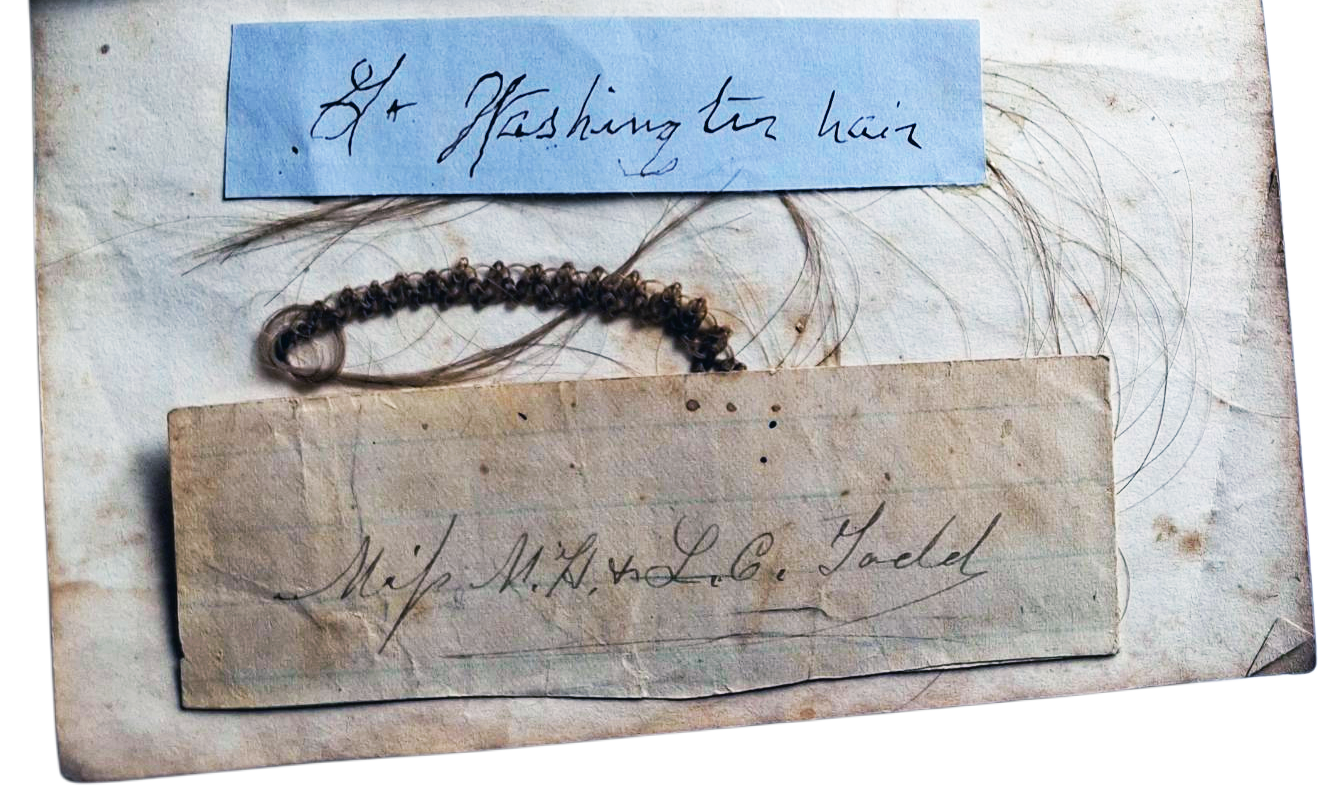 Gn Washington hair
Miss M. H. & L. C. Todd